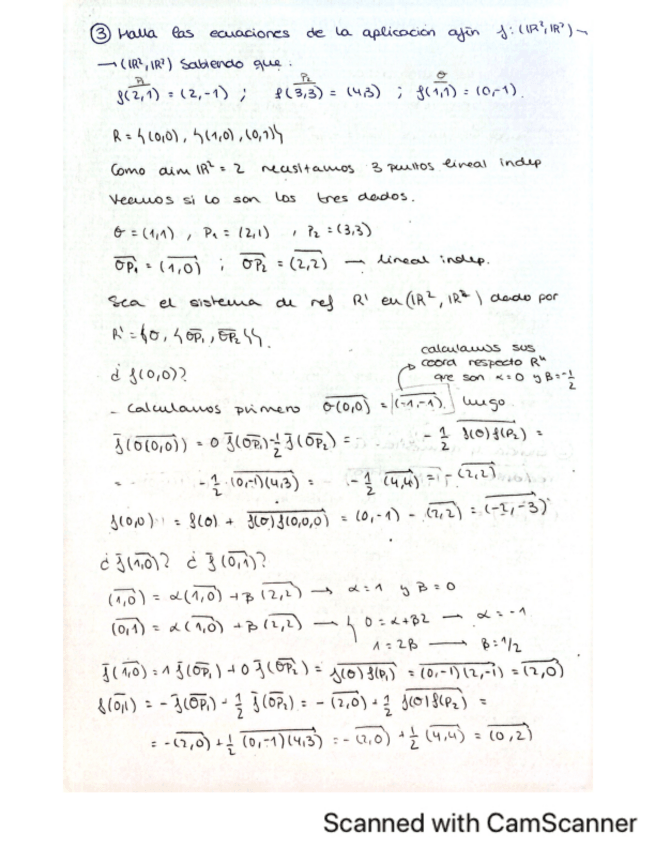 ③ Halla las ecuaciones de la aplicación afín f: (ℝ², ℝ²) →
→ (ℝ², ℝ²) sabiendo que:
P₁ P₂ O
f(2,1) = (2,-1) ; f(3,3) = (4,3) ; f(1,1) = (0,-1).
R = {(0,0), {(1,0), (0,1)}}
Como dim ℝ² = 2 necesitamos 3 puntos lineal indep
Veamos si lo son los tres dados.
O = (1,1) , P₁ = (2,1) , P₂ = (3,3)
OP₁ = (1,0) ; OP₂ = (2,2) → lineal indep.
Sea el sistema de ref R' en (ℝ², ℝ²) dado por
R' = {O, {OP₁, OP₂}}.
calculamos sus
coord respecto R"
que son α=0 y β=-1/2
¿ f(0,0)?
- Calculamos primero O(0,0) = (-1,-1). luego
f(O(0,0)) = 0 f(OP₁) - 1/2 f(OP₂) = - 1/2 f(O)f(P₂) =
= - 1/2 (0,-1)(4,3) = - 1/2 (4,4) = - (2,2)
f(0,0) = f(O) + f(O)f(0,0,0) = (0,-1) - (2,2) = (-2,-3)
¿ f(1,0)? ¿ f(0,1)?
(1,0) = α(1,0) + β(2,2) → α = 1 y β = 0
(0,1) = α(1,0) + β(2,2) → { 0 = α + β2 → α = -1
1 = 2β → β = 1/2
f(1,0) = 1 f(OP₁) + 0 f(OP₂) = f(O)f(P₁) = (0,-1)(2,-1) = (2,0)
f(0,1) = - f(OP₁) + 1/2 f(OP₂) = - (2,0) + 1/2 f(O)f(P₂) =
= -(2,0) + 1/2 (0,-1)(4,3) = - (2,0) + 1/2 (4,4) = (0,2)
Scanned with CamScanner